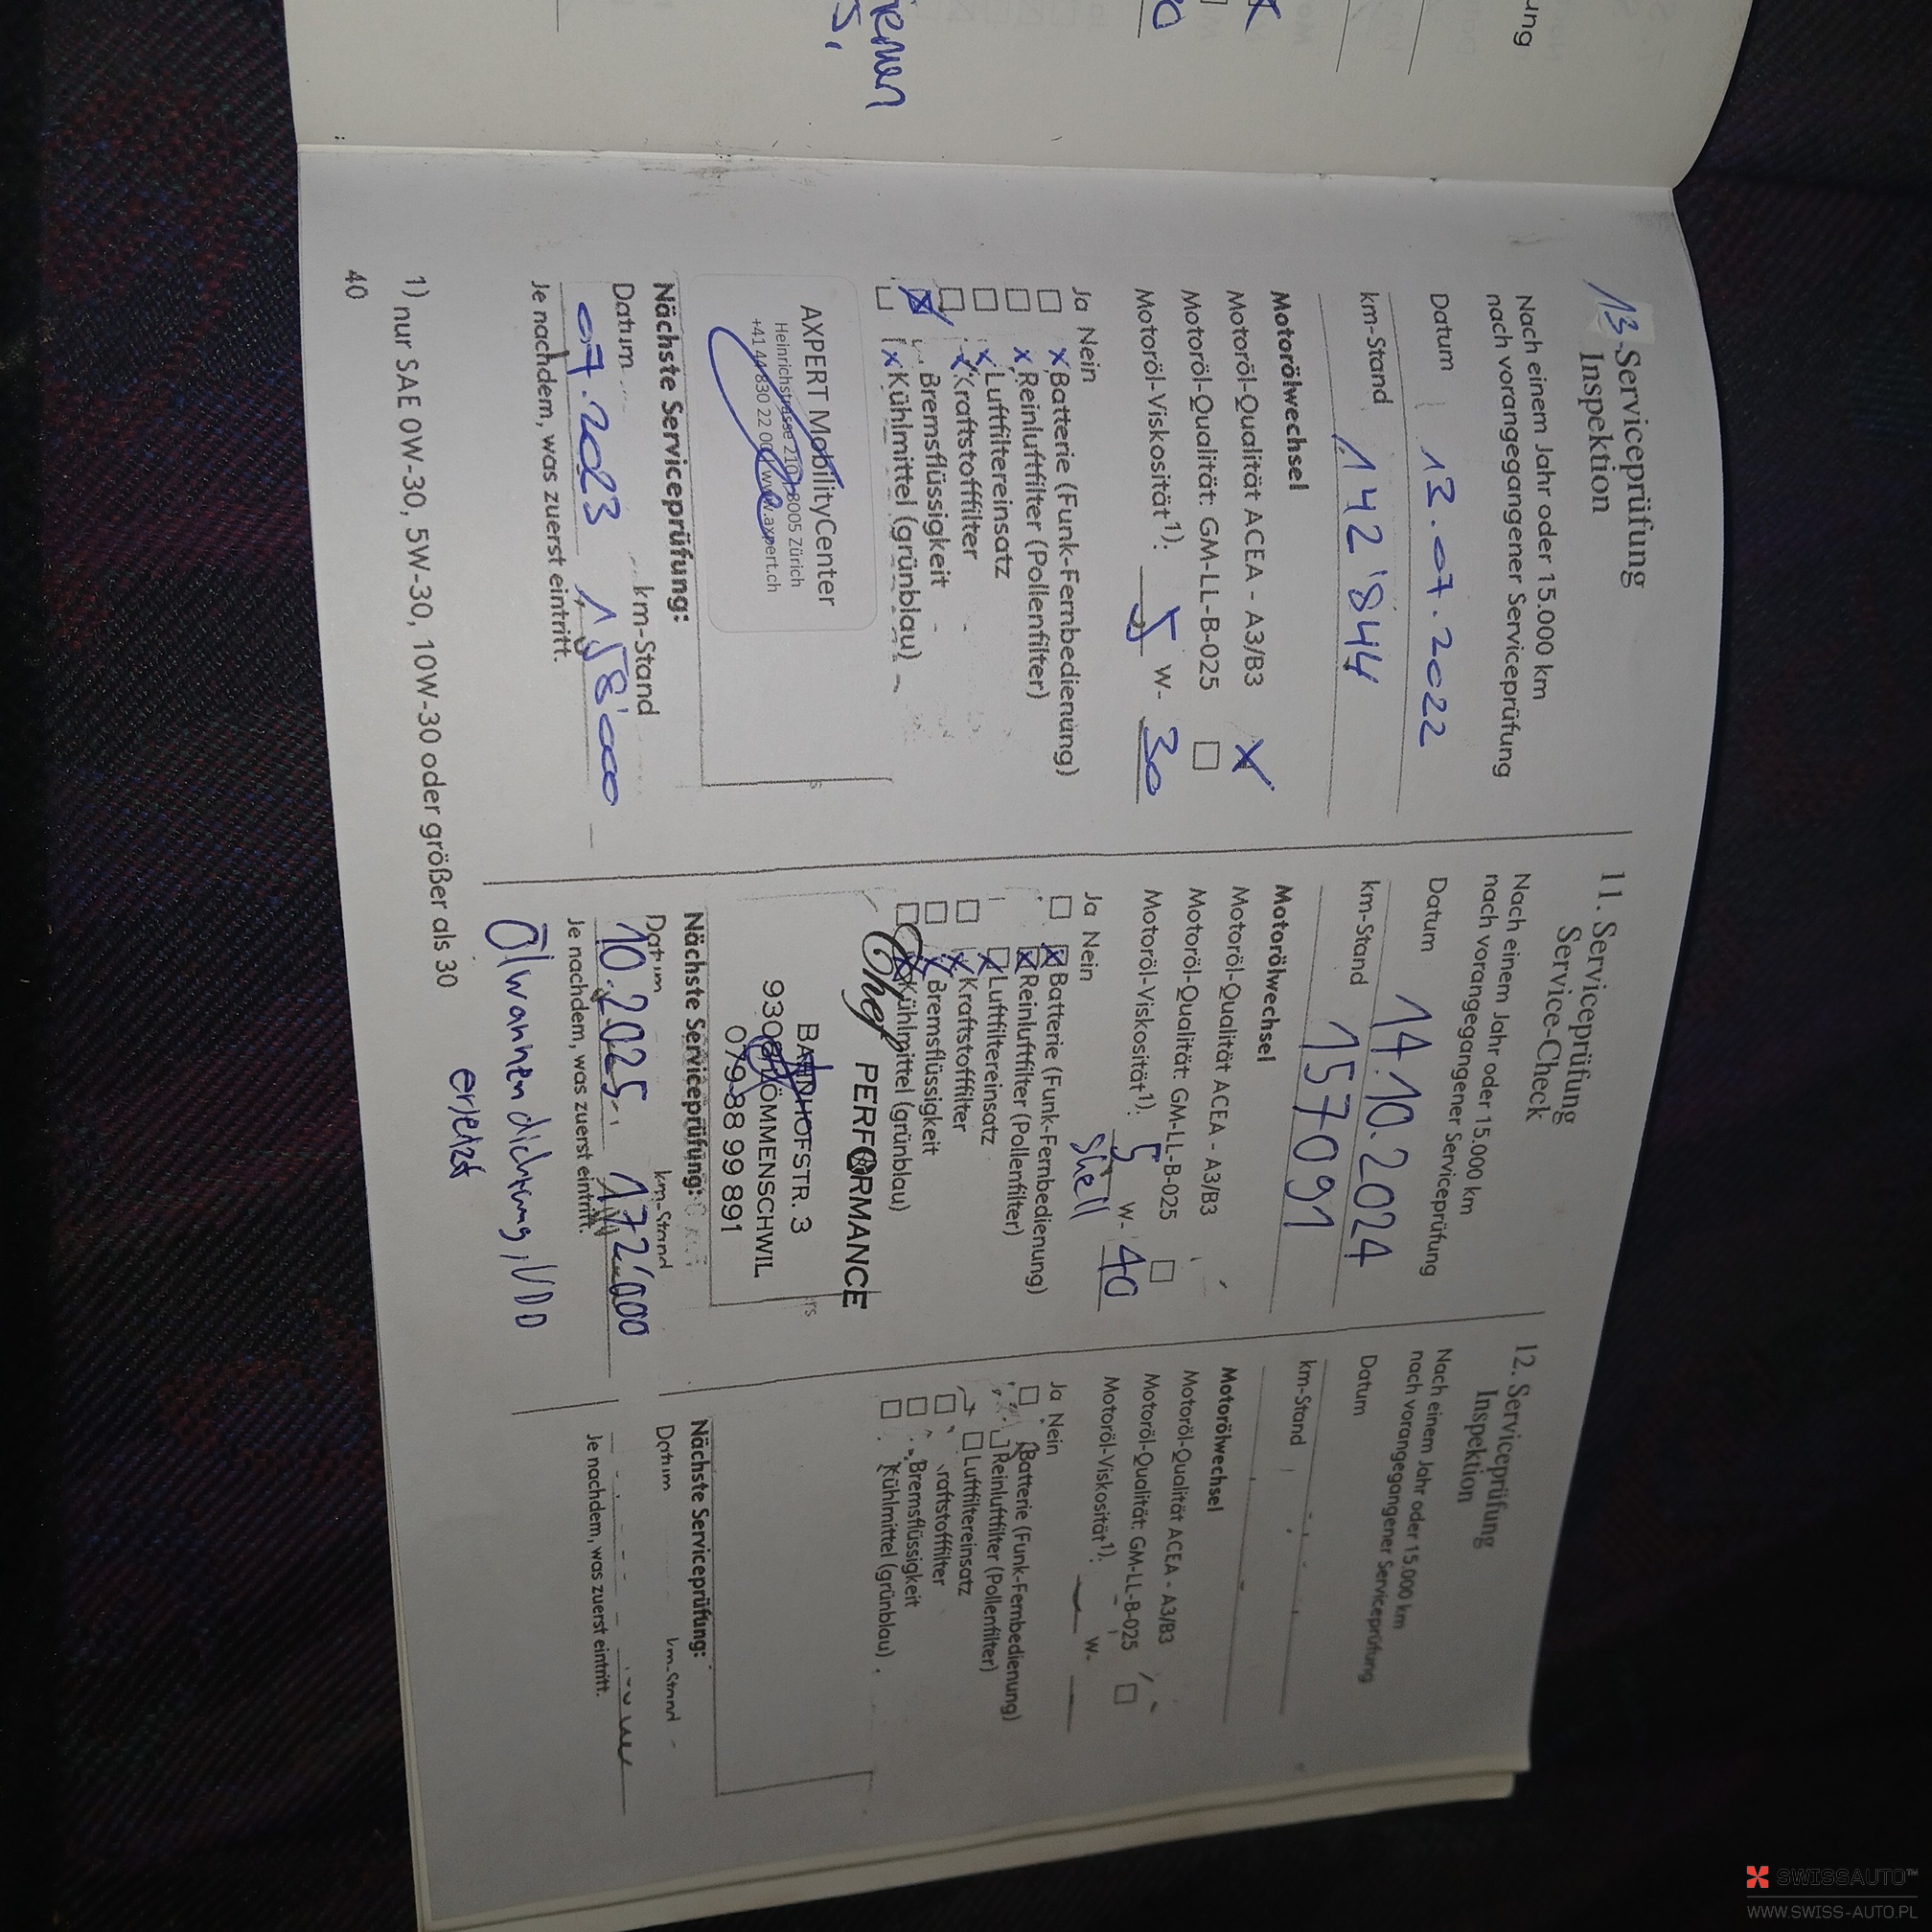 ung
X
0
ienen
s,
13-Serviceprüfung
Inspektion
Nach einem Jahr oder 15.000 km
nach vorangegangener Serviceprüfung
Datum 13.07.2022
km-Stand 142'844
Motorölwechsel
Motoröl-Qualität ACEA - A3/B3 X
Motoröl-Qualität: GM-LL-B-025 ☐
Motoröl-Viskosität¹): 5 W- 30
Ja Nein
☐ X Batterie (Funk-Fernbedienung)
☐ X Reinluftfilter (Pollenfilter)
☐ X Luftfiltereinsatz
☐ X Kraftstofffilter
☒ Bremsflüssigkeit
☐ X Kühlmittel (grünblau)
AXPERT MobilityCenter
Heinrichstrasse 210 8005 Zürich
+41 44 830 22 00 www.axpert.ch
Nächste Serviceprüfung:
Datum km-Stand
07.2023 158'000
Je nachdem, was zuerst eintritt.
11. Serviceprüfung
Service-Check
Nach einem Jahr oder 15.000 km
nach vorangegangener Serviceprüfung
Datum 14.10.2024
km-Stand 157091
Motorölwechsel
Motoröl-Qualität ACEA - A3/B3
Motoröl-Qualität: GM-LL-B-025 ☐
Motoröl-Viskosität¹): 5 W- 40
Shell
Ja Nein
☐ ☒ Batterie (Funk-Fernbedienung)
☒ Reinluftfilter (Pollenfilter)
☒ Luftfiltereinsatz
☐ ☒ Kraftstofffilter
☐ ☒ Bremsflüssigkeit
☐ ☒ Kühlmittel (grünblau)
Chef PERFORMANCE
BAHNHOFSTR. 3
RÖMMENSCHWIL
079 88 99 891
Nächste Serviceprüfung:
Datum km-Stand
10.2025 172'000
Je nachdem, was zuerst eintritt.
Ölwannendichtung, VDD
ersetzt
12. Serviceprüfung
Inspektion
Nach einem Jahr oder 15.000 km
nach vorangegangener Serviceprüfung
Datum
km-Stand
Motorölwechsel
Motoröl-Qualität ACEA - A3/B3
Motoröl-Qualität: GM-LL-B-025 ☐
Motoröl-Viskosität¹): W-
Ja Nein
☐ Batterie (Funk-Fernbedienung)
☐ Reinluftfilter (Pollenfilter)
☐ Luftfiltereinsatz
☐ raftstofffilter
☐ Bremsflüssigkeit
☐ Kühlmittel (grünblau)
Nächste Serviceprüfung:
Datum km-Stand
Je nachdem, was zuerst eintritt.
1) nur SAE 0W-30, 5W-30, 10W-30 oder größer als 30
40
SWISSAUTO™
WWW.SWISS-AUTO.PL